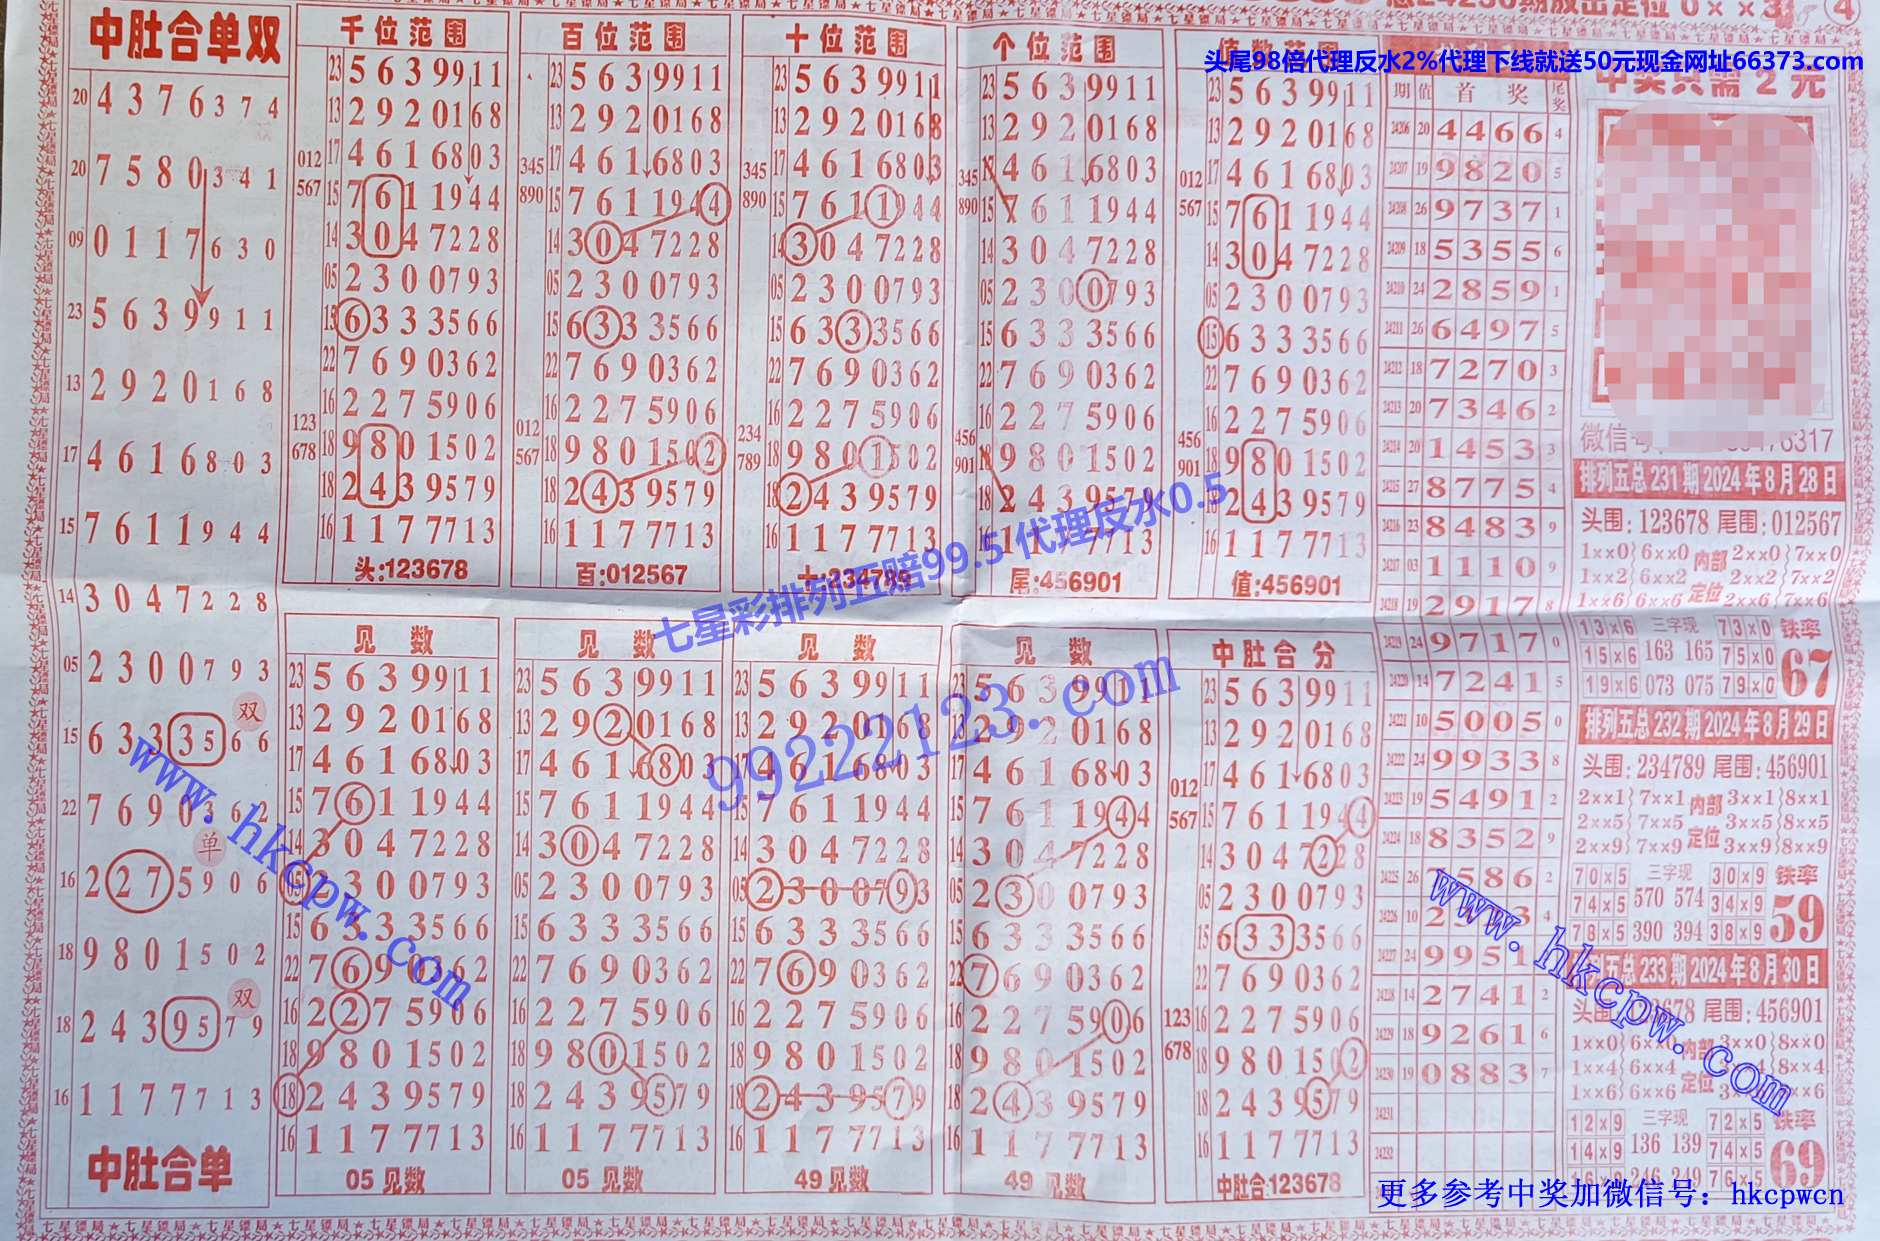 中肚合单双
20 4 3 7 6 3 7 4
20 7 5 8 0 3 4 1
09 0 1 1 7 6 3 0
23 5 6 3 9 9 1 1
13 2 9 2 0 1 6 8
17 4 6 1 6 8 0 3
15 7 6 1 1 9 4 4
14 3 0 4 7 2 2 8
05 2 3 0 0 7 9 3
双
15 6 3 3 3 5 6 6
22 7 6 9 0 3 6 2
单
16 2 2 7 5 9 0 6
18 9 8 0 1 5 0 2
双
18 2 4 3 9 5 7 9
16 1 1 7 7 7 1 3
中肚合单
千位范围
23 5 6 3 9 9 1 1
13 2 9 2 0 1 6 8
17 4 6 1 6 8 0 3
012
567
15 7 6 1 1 9 4 4
14 3 0 4 7 2 2 8
05 2 3 0 0 7 9 3
15 6 3 3 3 5 6 6
22 7 6 9 0 3 6 2
16 2 2 7 5 9 0 6
123
678
18 9 8 0 1 5 0 2
18 2 4 3 9 5 7 9
16 1 1 7 7 7 1 3
头:123678
百位范围
23 5 6 3 9 9 1 1
13 2 9 2 0 1 6 8
17 4 6 1 6 8 0 3
345
890
15 7 6 1 1 9 4 4
14 3 0 4 7 2 2 8
05 2 3 0 0 7 9 3
15 6 3 3 3 5 6 6
22 7 6 9 0 3 6 2
16 2 2 7 5 9 0 6
012
567
18 9 8 0 1 5 0 2
18 2 4 3 9 5 7 9
16 1 1 7 7 7 1 3
百:012567
十位范围
23 5 6 3 9 9 1 1
13 2 9 2 0 1 6 8
17 4 6 1 6 8 0 3
345
890
15 7 6 1 1 9 4 4
14 3 0 4 7 2 2 8
05 2 3 0 0 7 9 3
15 6 3 3 3 5 6 6
22 7 6 9 0 3 6 2
16 2 2 7 5 9 0 6
234
789
18 9 8 0 1 5 0 2
18 2 4 3 9 5 7 9
16 1 1 7 7 7 1 3
十:234789
个位范围
23 5 6 3 9 9 1 1
13 2 9 2 0 1 6 8
17 4 6 1 6 8 0 3
345
890
15 7 6 1 1 9 4 4
14 3 0 4 7 2 2 8
05 2 3 0 0 7 9 3
15 6 3 3 3 5 6 6
22 7 6 9 0 3 6 2
16 2 2 7 5 9 0 6
456
901
18 9 8 0 1 5 0 2
18 2 4 3 9 5 7 9
16 1 1 7 7 7 1 3
尾:456901
值数范围
23 5 6 3 9 9 1 1
13 2 9 2 0 1 6 8
17 4 6 1 6 8 0 3
012
567
15 7 6 1 1 9 4 4
14 3 0 4 7 2 2 8
05 2 3 0 0 7 9 3
15 6 3 3 3 5 6 6
22 7 6 9 0 3 6 2
16 2 2 7 5 9 0 6
456
901
18 9 8 0 1 5 0 2
18 2 4 3 9 5 7 9
16 1 1 7 7 7 1 3
值:456901
见数
23 5 6 3 9 9 1 1
13 2 9 2 0 1 6 8
17 4 6 1 6 8 0 3
15 7 6 1 1 9 4 4
14 3 0 4 7 2 2 8
05 2 3 0 0 7 9 3
15 6 3 3 3 5 6 6
22 7 6 9 0 3 6 2
16 2 2 7 5 9 0 6
18 9 8 0 1 5 0 2
18 2 4 3 9 5 7 9
16 1 1 7 7 7 1 3
05 见数
见数
23 5 6 3 9 9 1 1
13 2 9 2 0 1 6 8
17 4 6 1 6 8 0 3
15 7 6 1 1 9 4 4
14 3 0 4 7 2 2 8
05 2 3 0 0 7 9 3
15 6 3 3 3 5 6 6
22 7 6 9 0 3 6 2
16 2 2 7 5 9 0 6
18 9 8 0 1 5 0 2
18 2 4 3 9 5 7 9
16 1 1 7 7 7 1 3
05 见数
见数
23 5 6 3 9 9 1 1
13 2 9 2 0 1 6 8
17 4 6 1 6 8 0 3
15 7 6 1 1 9 4 4
14 3 0 4 7 2 2 8
05 2 3 0 0 7 9 3
15 6 3 3 3 5 6 6
22 7 6 9 0 3 6 2
16 2 2 7 5 9 0 6
18 9 8 0 1 5 0 2
18 2 4 3 9 5 7 9
16 1 1 7 7 7 1 3
49 见数
见数
23 5 6 3 9 9 1 1
13 2 9 2 0 1 6 8
17 4 6 1 6 8 0 3
15 7 6 1 1 9 4 4
14 3 0 4 7 2 2 8
05 2 3 0 0 7 9 3
15 6 3 3 3 5 6 6
22 7 6 9 0 3 6 2
16 2 2 7 5 9 0 6
18 9 8 0 1 5 0 2
18 2 4 3 9 5 7 9
16 1 1 7 7 7 1 3
49 见数
中肚合分
23 5 6 3 9 9 1 1
13 2 9 2 0 1 6 8
17 4 6 1 6 8 0 3
012
567
15 7 6 1 1 9 4 4
14 3 0 4 7 2 2 8
05 2 3 0 0 7 9 3
15 6 3 3 3 5 6 6
22 7 6 9 0 3 6 2
16 2 2 7 5 9 0 6
123
678
18 9 8 0 1 5 0 2
18 2 4 3 9 5 7 9
16 1 1 7 7 7 1 3
中肚合:123678
期 值 首奖 尾奖
24206 20 4466 4
24207 19 9820 5
24208 26 9737 1
24209 18 5355 6
24210 24 2859 1
24211 26 6497 5
24212 18 7270 3
24213 20 7346 2
24214 20 1453 3
24215 27 8775 4
24216 23 8483 9
24217 03 1110 9
24218 19 2917 8
24219 24 9717 0
24220 14 7241 5
24221 10 5005 0
24222 24 9933 8
24223 19 5491 2
24224 18 8352 9
24225 26 586 2
24226 10 2 3 4
24227 24 9951
24228 14 2741 2
24229 18 9261 6
24230 19 0883 7
24231
24232
头尾98倍代理反水2%代理下线就送50元现金网址66373.com
中奖只需2元
微信号
476317
排列五总231期2024年8月28日
头围:123678 尾围:012567
1××0 6××0 内部 2××0 7××0
1××2 6××2 2××2 7××2
1××6 6××6 定位 2××6 7××6
13×6 三字现 73×0 铁率
15×6 163 165 75×0 67
19×6 073 075 79×0
排列五总232期2024年8月29日
头围:234789 尾围:456901
2××1 7××1 内部 3××1 8××1
2××5 7××5 定位 3××5 8××5
2××9 7××9 3××9 8××9
70×5 三字现 30×9 铁率
74×5 570 574 34×9 59
78×5 390 394 38×9
列五总233期2024年8月30日
头围: 3678 尾围:456901
1××0 6××0 内部 3××0 8××0
1××4 6××4 定位 8××4
1××6 6××6
12×9 三字现 72×5 铁率
14×9 136 139 74×5 69
16×9 246 249 76×5
七星彩排列五赔99.5 代理反水0.5
99222123.com
www.hkcpw.com
www.hkcpw.com
更多参考中奖加微信号：hkcpwcn